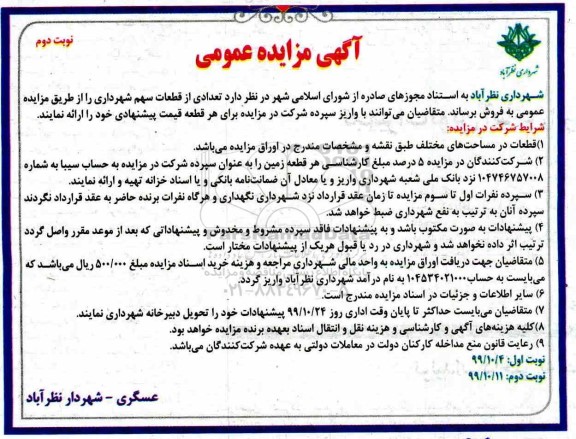 آگهی مزایده عمومی
نوبت دوم
شهرداری نظرآباد
شهرداری نظرآباد به استناد مجوزهای صادره از شورای اسلامی شهر در نظر دارد تعدادی از قطعات سهم شهرداری را از طریق مزایده
عمومی به فروش برساند. متقاضیان می‌توانند با واریز سپرده شرکت در مزایده برای هر قطعه قیمت پیشنهادی خود را ارائه نمایند.
شرایط شرکت در مزایده:
۱)قطعات در مساحت‌های مختلف طبق نقشه و مشخصات مندرج در اوراق مزایده می‌باشد.
۲) شرکت‌کنندگان در مزایده ۵ درصد مبلغ کارشناسی هر قطعه زمین را به عنوان سپرده شرکت در مزایده به حساب سیبا به شماره
۰۱۰۴۷۴۶۷۵۷۰۰۸ نزد بانک ملی شعبه شهرداری واریز و یا معادل آن ضمانت‌نامه بانکی و یا اسناد خزانه تهیه و ارائه نمایند.
۳) سپرده نفرات اول تا سوم مزایده تا زمان عقد قرارداد نزد شهرداری نگهداری و هرگاه نفرات برنده حاضر به عقد قرارداد نگردند
سپرده آنان به ترتیب به نفع شهرداری ضبط خواهد شد.
۴) پیشنهادات به صورت مکتوب باشد و به پیشنهادات فاقد سپرده مشروط و مخدوش و پیشنهاداتی که بعد از موعد مقرر واصل گردد
ترتیب اثر داده نخواهد شد و شهرداری در رد یا قبول هریک از پیشنهادات مختار است.
۵) متقاضیان جهت دریافت اوراق مزایده به واحد مالی شهرداری مراجعه و هزینه خرید اسناد مزایده مبلغ ۵۰۰/۰۰۰ ریال می‌باشد که
می‌بایست به حساب۰۱۰۴۵۳۴۰۲۱۰۰۰ به نام درآمد شهرداری نظرآباد واریز گردد.
۶) سایر اطلاعات و جزئیات در اسناد مزایده مندرج است.
۷) متقاضیان می‌بایست حداکثر تا پایان وقت اداری روز ۹۹/۱۰/۲۴ پیشنهادات خود را تحویل دبیرخانه شهرداری نمایند.
۸)کلیه هزینه‌های آگهی و کارشناسی و هزینه نقل و انتقال اسناد بعهده برنده مزایده خواهد بود.
۹) رعایت قانون منع مداخله کارکنان دولت در معاملات دولتی به عهده شرکت‌کنندگان می‌باشد.
نوبت اول: ۹۹/۱۰/۴
نوبت دوم: ۹۹/۱۰/۱۱
عسگری - شهردار نظرآباد